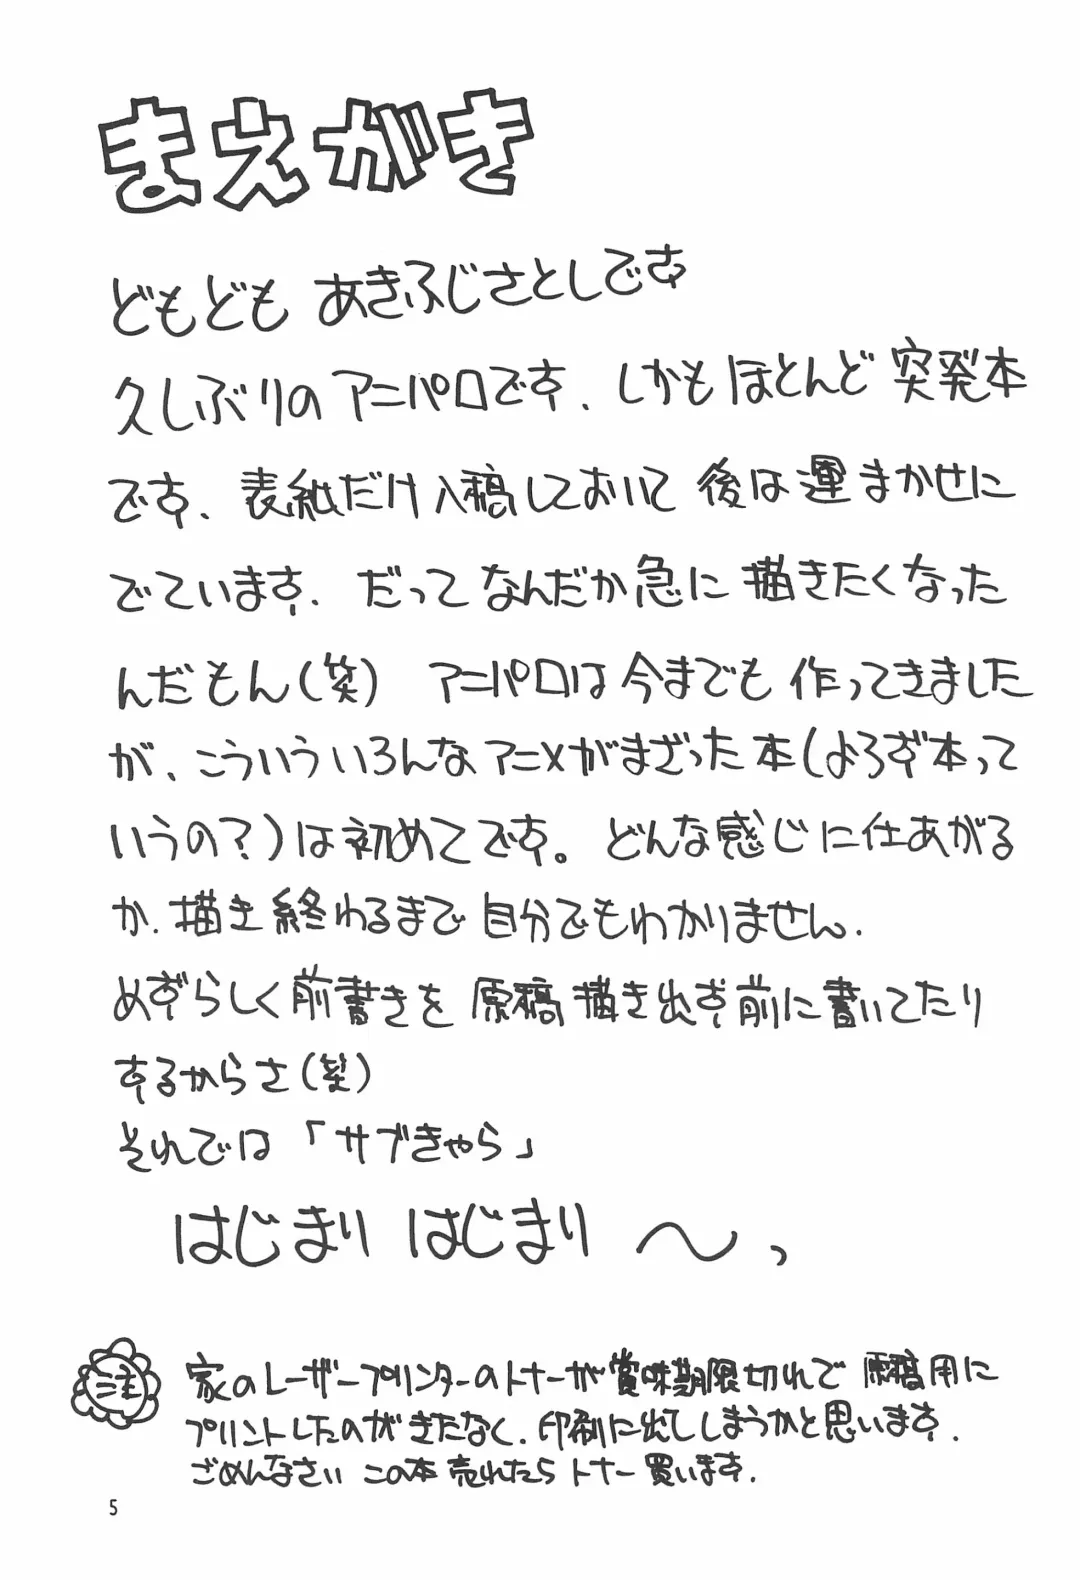 まえがき
どもども あきふじさとしです
久しぶりの アニパロです、しかも ほとんど 突発本
です、表紙だけ入稿しておいて 後は 運まかせに
でています、だって なんだか急に 描きたくなった
んだもん(笑) アニパロは今までも 作ってきました
が、こういういろんなアニメがまざった本(よろず本って
いうの?)は初めてです。どんな感じに仕あがる
か、描き終わるまで 自分でもわかりません、
めずらしく前書きを 原稿描き出す前に書いてたり
するからさ(笑)
それでは「サブきゃら」
はじまり はじまり 〜っ
注 家のレーザープリンターのトナーが賞味期限切れで 原稿用に
プリントしたのがきたなく、印刷に出てしまうかと思います、
ごめんなさい この本 売れたら トナー 買います、
5